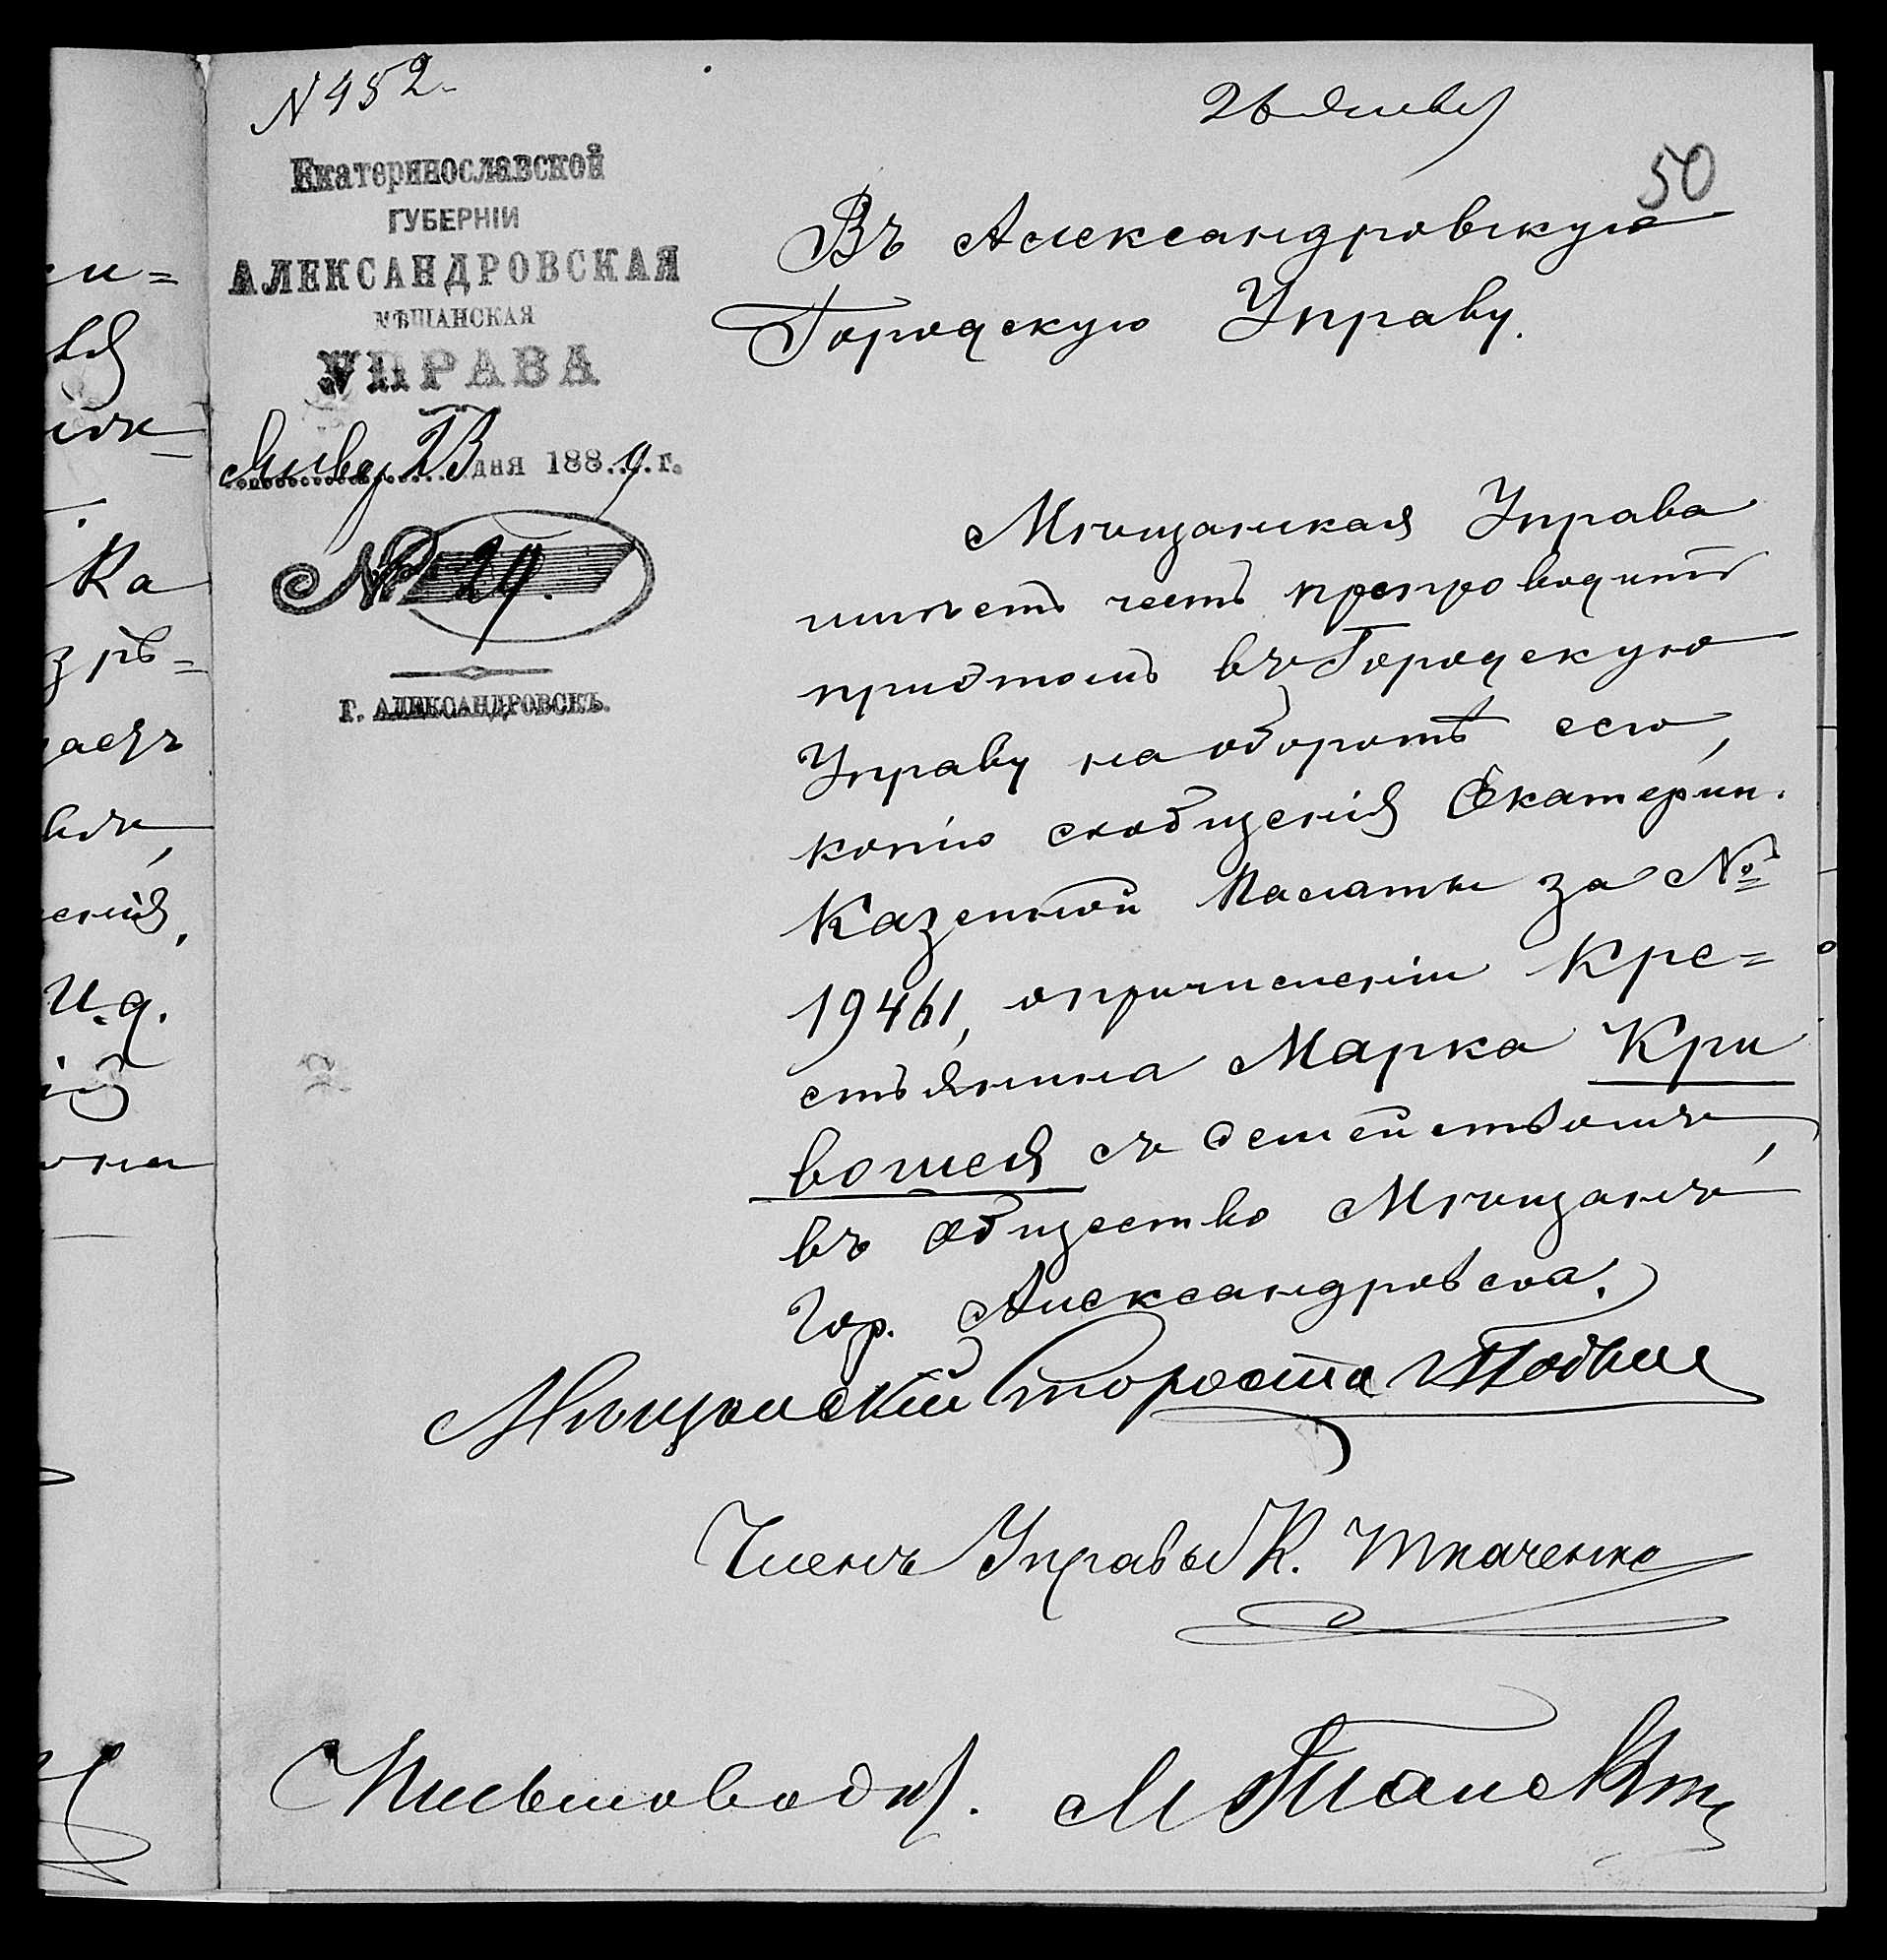 N 452
26 Янвр
50
Екатеринославской
ГУБЕРНІИ
АЛЕКСАНДРОВСКАЯ
МѢЩАНСКАЯ
УПРАВА
Январ 23 дня 1889 г.
№ 29.
Г. АЛЕКСАНДРОВСКЪ.
Въ Александровскую
Городскую Управу.
Мѣщанская Управа
имѣетъ честь препроводить
приэтомъ въ Городскую
Управу на оборотѣ сего,
копію сообщенія Екатерин.
Казенной Палаты за №
19461, о причисленіи Кре=
стьянина Марка Кри
вошея съ семействомъ,
въ общество Мѣщанъ
гор. Александровска.
Мѣщанскій Староста
Членъ Управы К. Ткаченко
Письмовод.